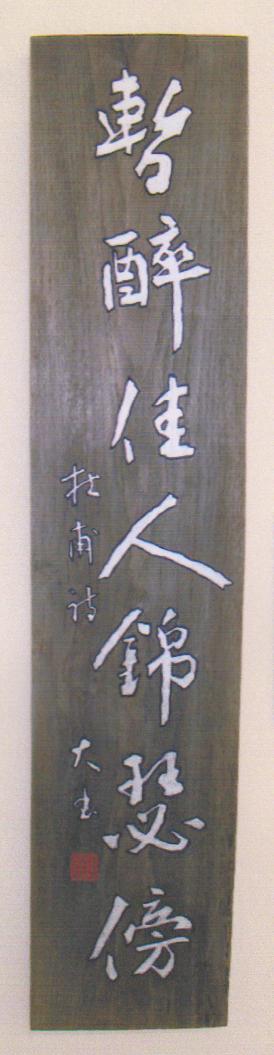 暫醉佳人錦瑟傍
杜甫詩
大書